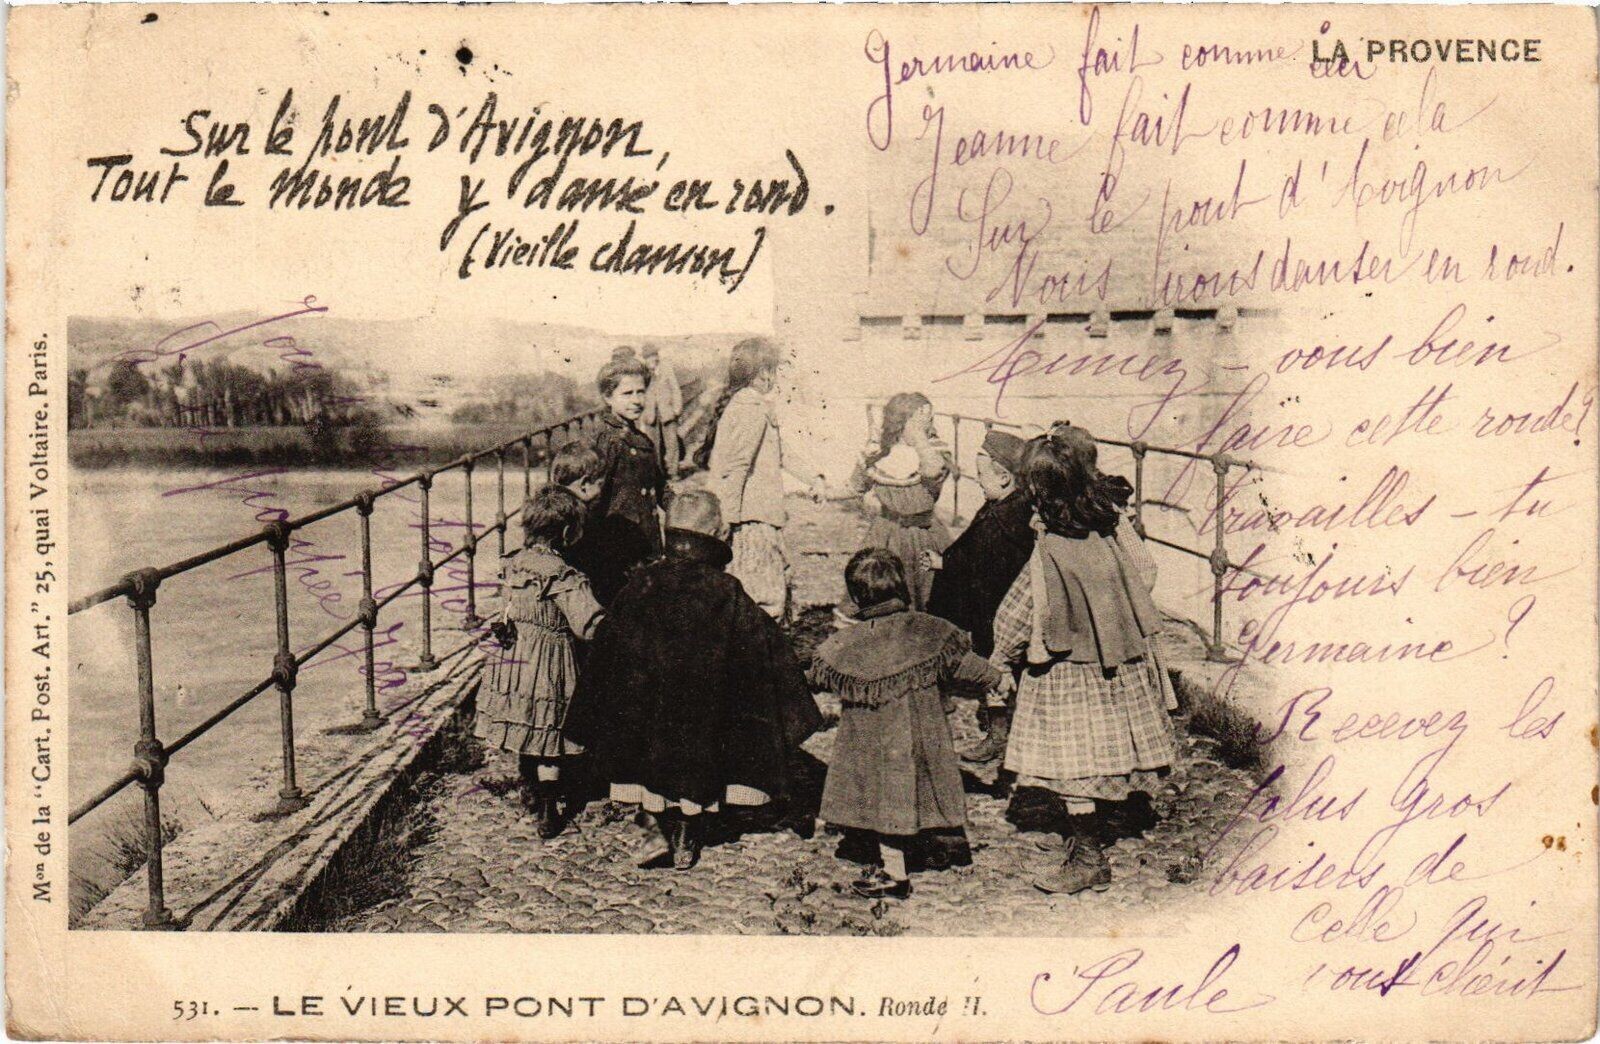 LA PROVENCE
Sur le pont d'Avignon,
Tout le monde y danse en rond.
(Vieille chanson)
Germaine fait comme ceci
Jeanne fait comme cela
Sur le pont d'Avignon
Nous irons danser en rond.
Aimez-vous bien
faire cette ronde?
travailles-tu
toujours bien
Germaine?
Recevez les
plus gros
baisers de
celle qui
vous chérit
Paule
Mon de la "Cart. Post. Art." 25, quai Voltaire. Paris.
531. — LE VIEUX PONT D'AVIGNON. Ronde II.